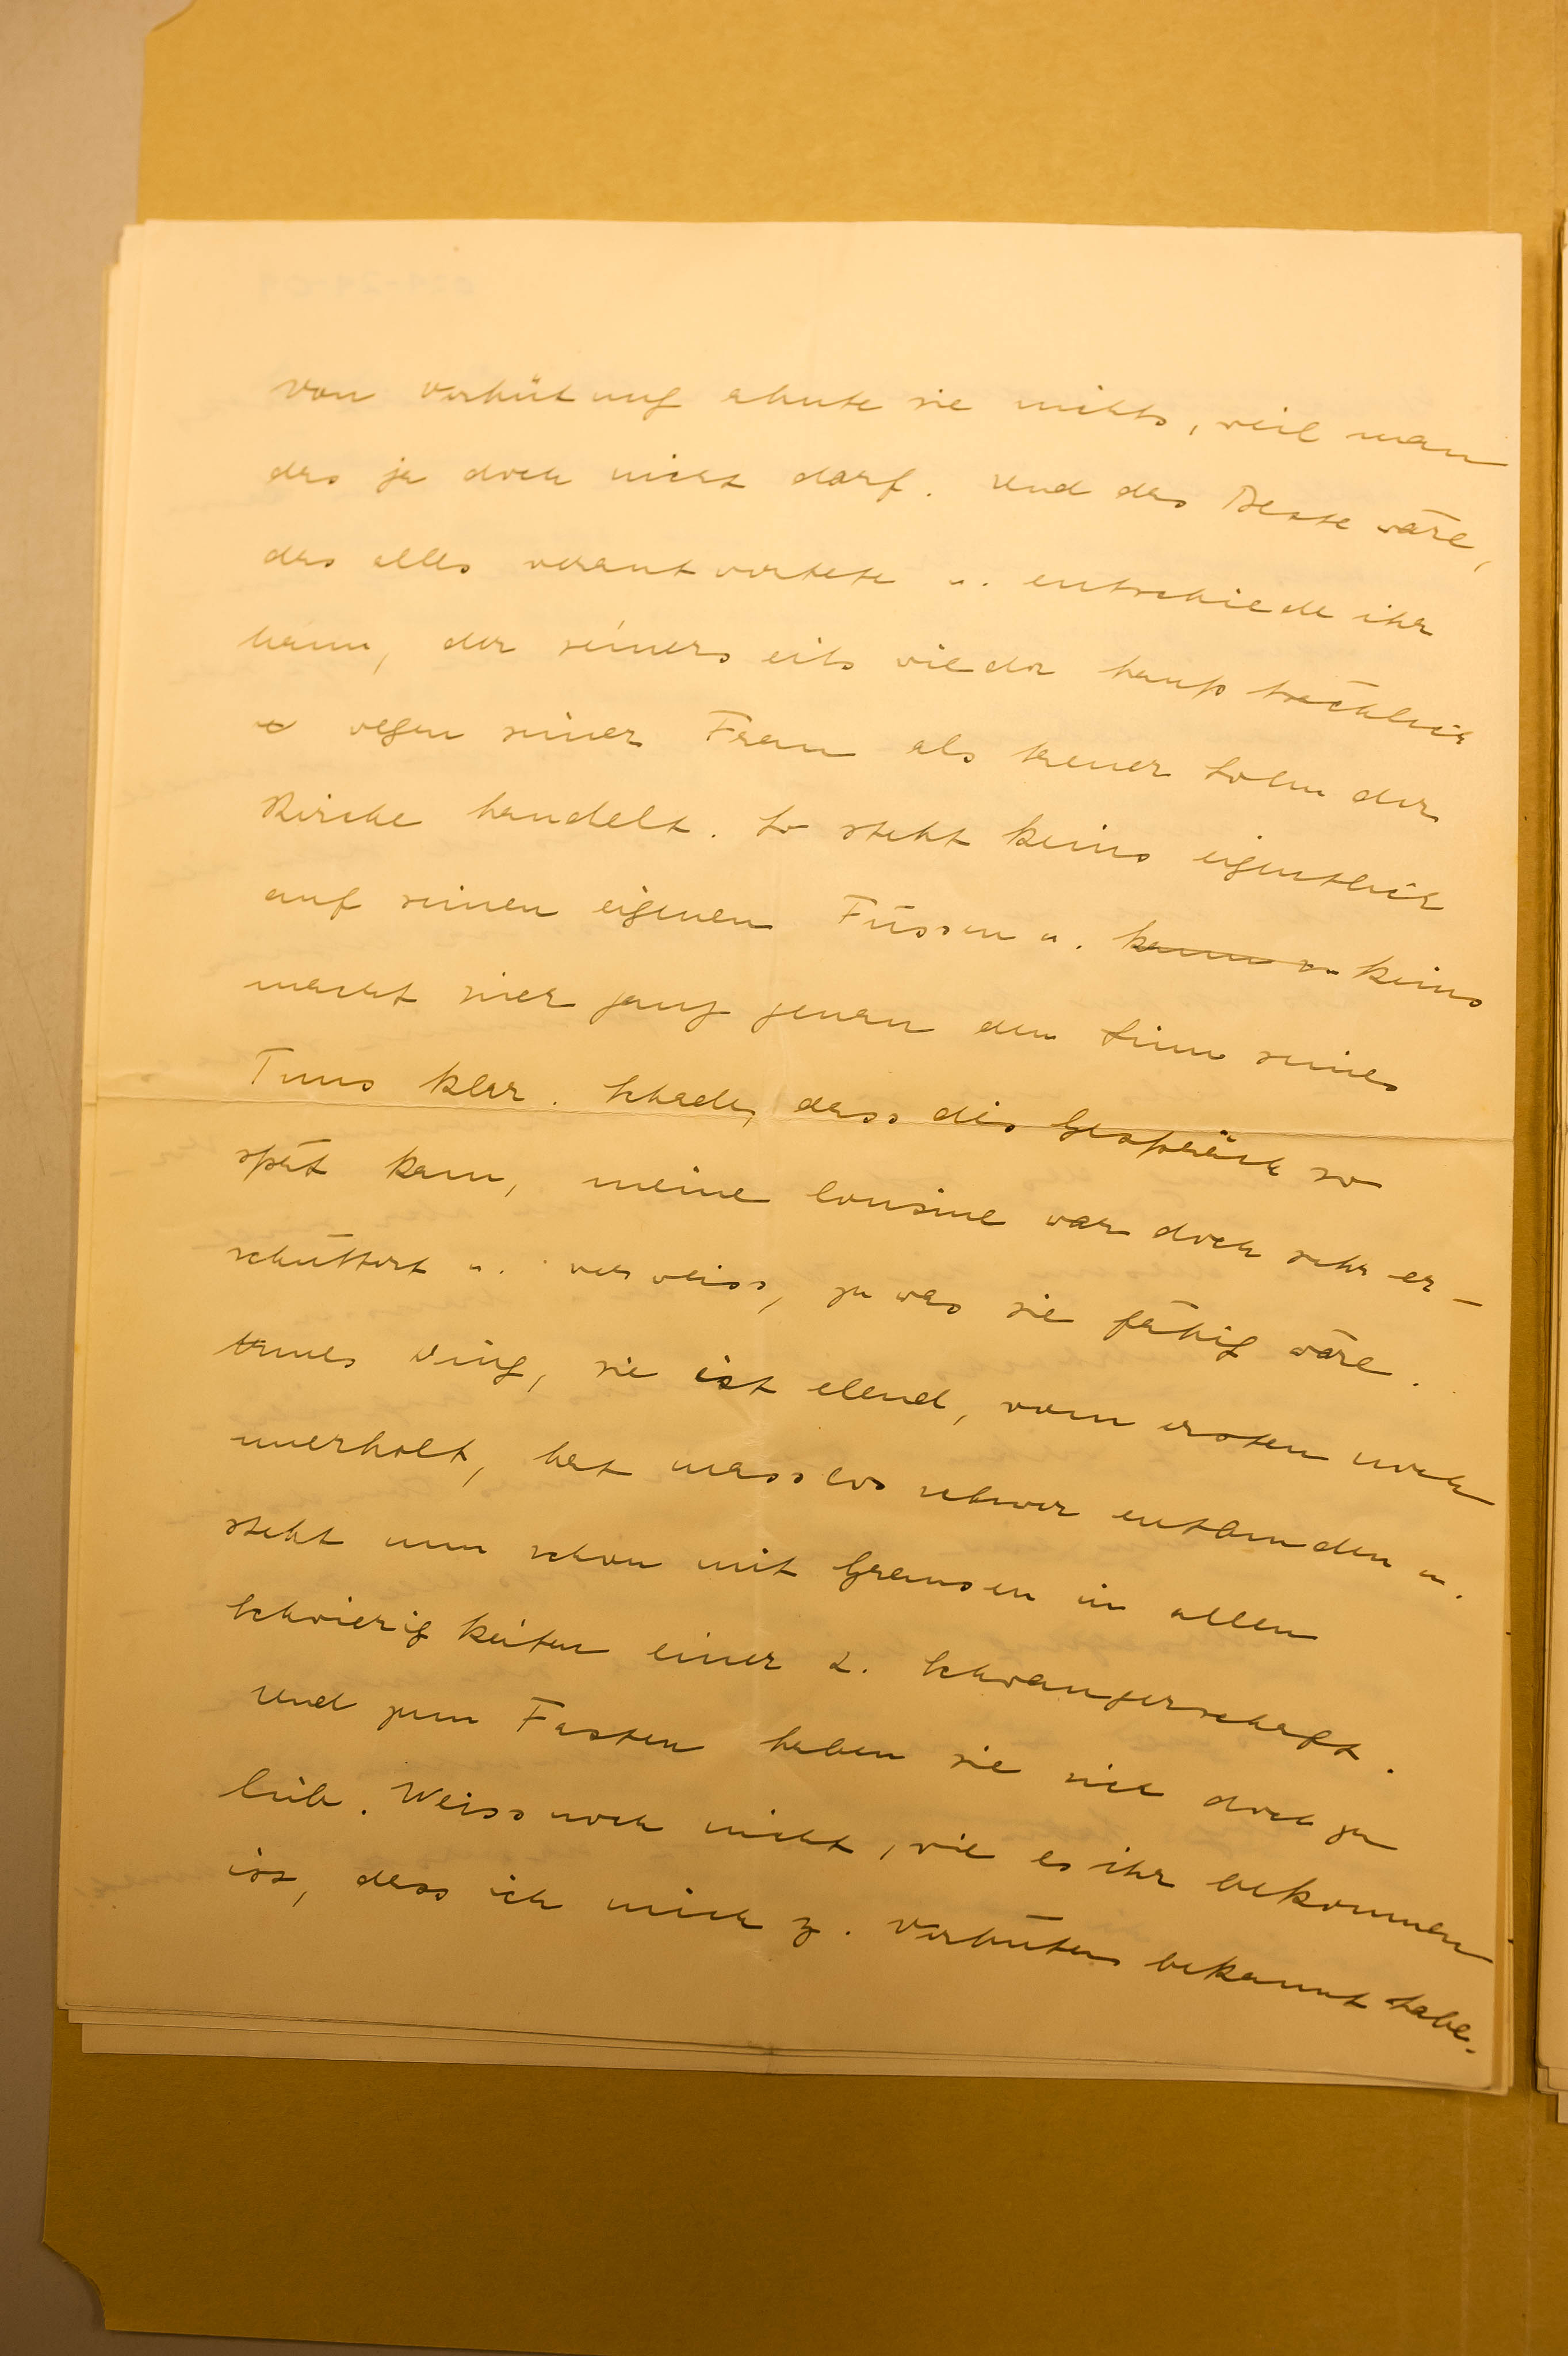 Von Verhütung ahnte sie nichts, weil man
das ja doch nicht darf. Und das Beste wäre,
das alles verantwortete u. entschiede ihr
Mann, der seinerseits wieder hauptsächlich
wegen seiner Frau als treuer Sohn der
Kirche handelt. So steht keins eigentlich
auf seinen eigenen Füssen u. kann keins
macht sich ganz genau den Sinn seines
Tuns klar. Schade, dass dies Gespräch so
spät kam, meine Cousine war doch sehr er-
schüttert u. wer weiss, zu was sie fähig wäre.
Armes Ding, sie ist elend, vom ersten noch
unerholt, hat masslos schwer entbunden u.
steht nun schon mit Grausen in allen
Schwierigkeiten einer 2. Schwangerschaft.
Und zum Fasten haben sie sich doch zu
lieb. Weiss noch nicht, wie es ihr bekommen
ist, dass ich mich z. Verhüten bekannt habe.